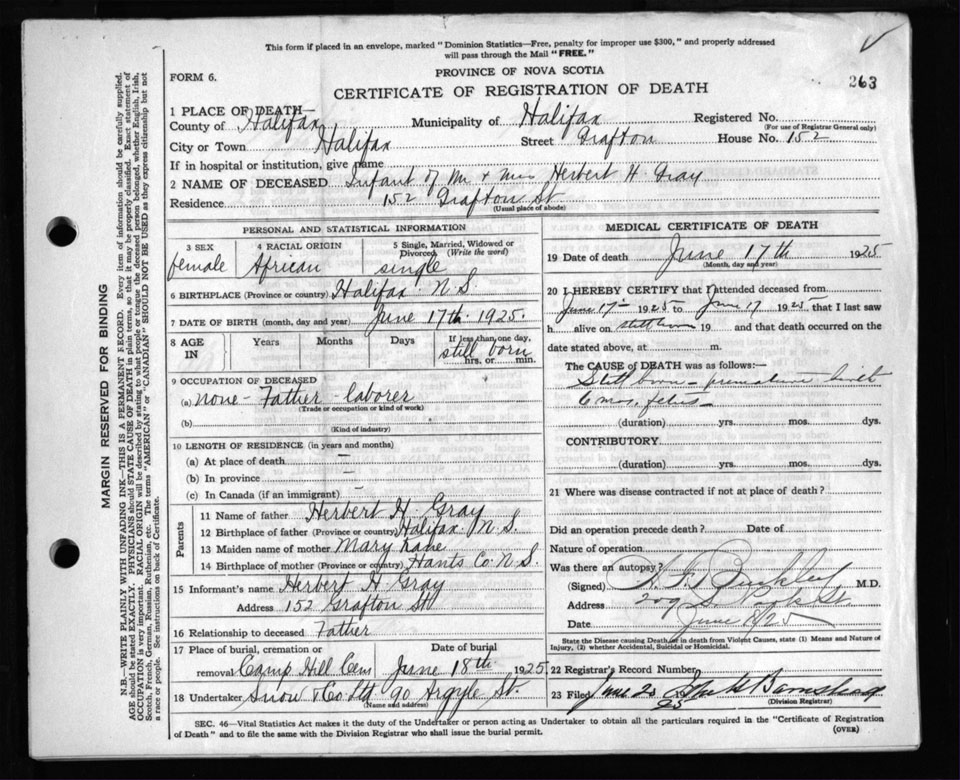 This form if placed in an envelope, marked "Dominion Statistics—Free, penalty for improper use $300," and properly addressed
will pass through the Mail "FREE."
FORM 6.
PROVINCE OF NOVA SCOTIA
263
CERTIFICATE OF REGISTRATION OF DEATH
1 PLACE OF DEATH—
County of Halifax Municipality of Halifax Registered No.
(For use of Registrar General only)
City or Town Halifax Street Grafton House No. 152
If in hospital or institution, give name
2 NAME OF DECEASED Infant of Mr & Mrs Herbert H Gray
Residence 152 Grafton St
(Usual place of abode)
PERSONAL AND STATISTICAL INFORMATION
3 SEX 4 RACIAL ORIGIN 5 Single, Married, Widowed or Divorced (Write the word)
female African single
6 BIRTHPLACE (Province or country) Halifax N.S.
7 DATE OF BIRTH (month, day and year) June 17th 1925.
8 AGE IN Years Months Days If less than one day, hrs. or min.
still born
9 OCCUPATION OF DECEASED
(a) none - Father - laborer
(Trade or occupation or kind of work)
(b)
(Kind of industry)
10 LENGTH OF RESIDENCE (in years and months)
(a) At place of death —
(b) In province —
(c) In Canada (if an immigrant) —
Parents
11 Name of father Herbert H. Gray
12 Birthplace of father (Province or country) Halifax N.S.
13 Maiden name of mother Mary Kane
14 Birthplace of mother (Province or country) Hants Co. N.S.
15 Informant's name Herbert H Gray
Address 152 Grafton St
16 Relationship to deceased Father
17 Place of burial, cremation or removal Date of burial
Camp Hill Cem June 18th 1925.
18 Undertaker Snow & Co Ltd 90 Argyle St.
(Name and address)
MEDICAL CERTIFICATE OF DEATH
19 Date of death June 17th 1925
(Month, day and year)
20 I HEREBY CERTIFY that I attended deceased from
June 17 1925 to June 17 1925 that I last saw
h alive on stillborn 19 and that death occurred on the
date stated above, at m.
The CAUSE OF DEATH was as follows:—
Stillborn - premature birth
6 mos. fetus
(duration) yrs. mos. dys.
CONTRIBUTORY
(duration) yrs. mos. dys.
21 Where was disease contracted if not at place of death?
Did an operation precede death? Date of
Nature of operation
Was there an autopsy?
(Signed) M.D.
Address 209 St.
Date June /25
State the Disease causing Death, or in death from Violent Causes, state (1) Means and Nature of
Injury, (2) whether Accidental, Suicidal or Homicidal.
22 Registrar's Record Number
23 Filed June 20 1925
(Division Registrar)
SEC. 46—Vital Statistics Act makes it the duty of the Undertaker or person acting as Undertaker to obtain all the particulars required in the "Certificate of Registration
of Death" and to file the same with the Division Registrar who shall issue the burial permit.
(OVER)
MARGIN RESERVED FOR BINDING
N.B.—WRITE PLAINLY WITH UNFADING INK—THIS IS A PERMANENT RECORD. Every item of information should be carefully supplied.
AGE should be stated EXACTLY. PHYSICIANS should STATE CAUSE OF DEATH in plain terms, so that it may be properly classified. Exact statement of
OCCUPATION is very important. RACIAL ORIGIN will be described by stating to what people or tongue the deceased person belonged, whether English, Irish,
Scotch, French, German, Russian, Ruthenian, etc. The terms "AMERICAN" or "CANADIAN" SHOULD NOT BE USED as they express citizenship but not
a race or people. See instructions on back of Certificate.